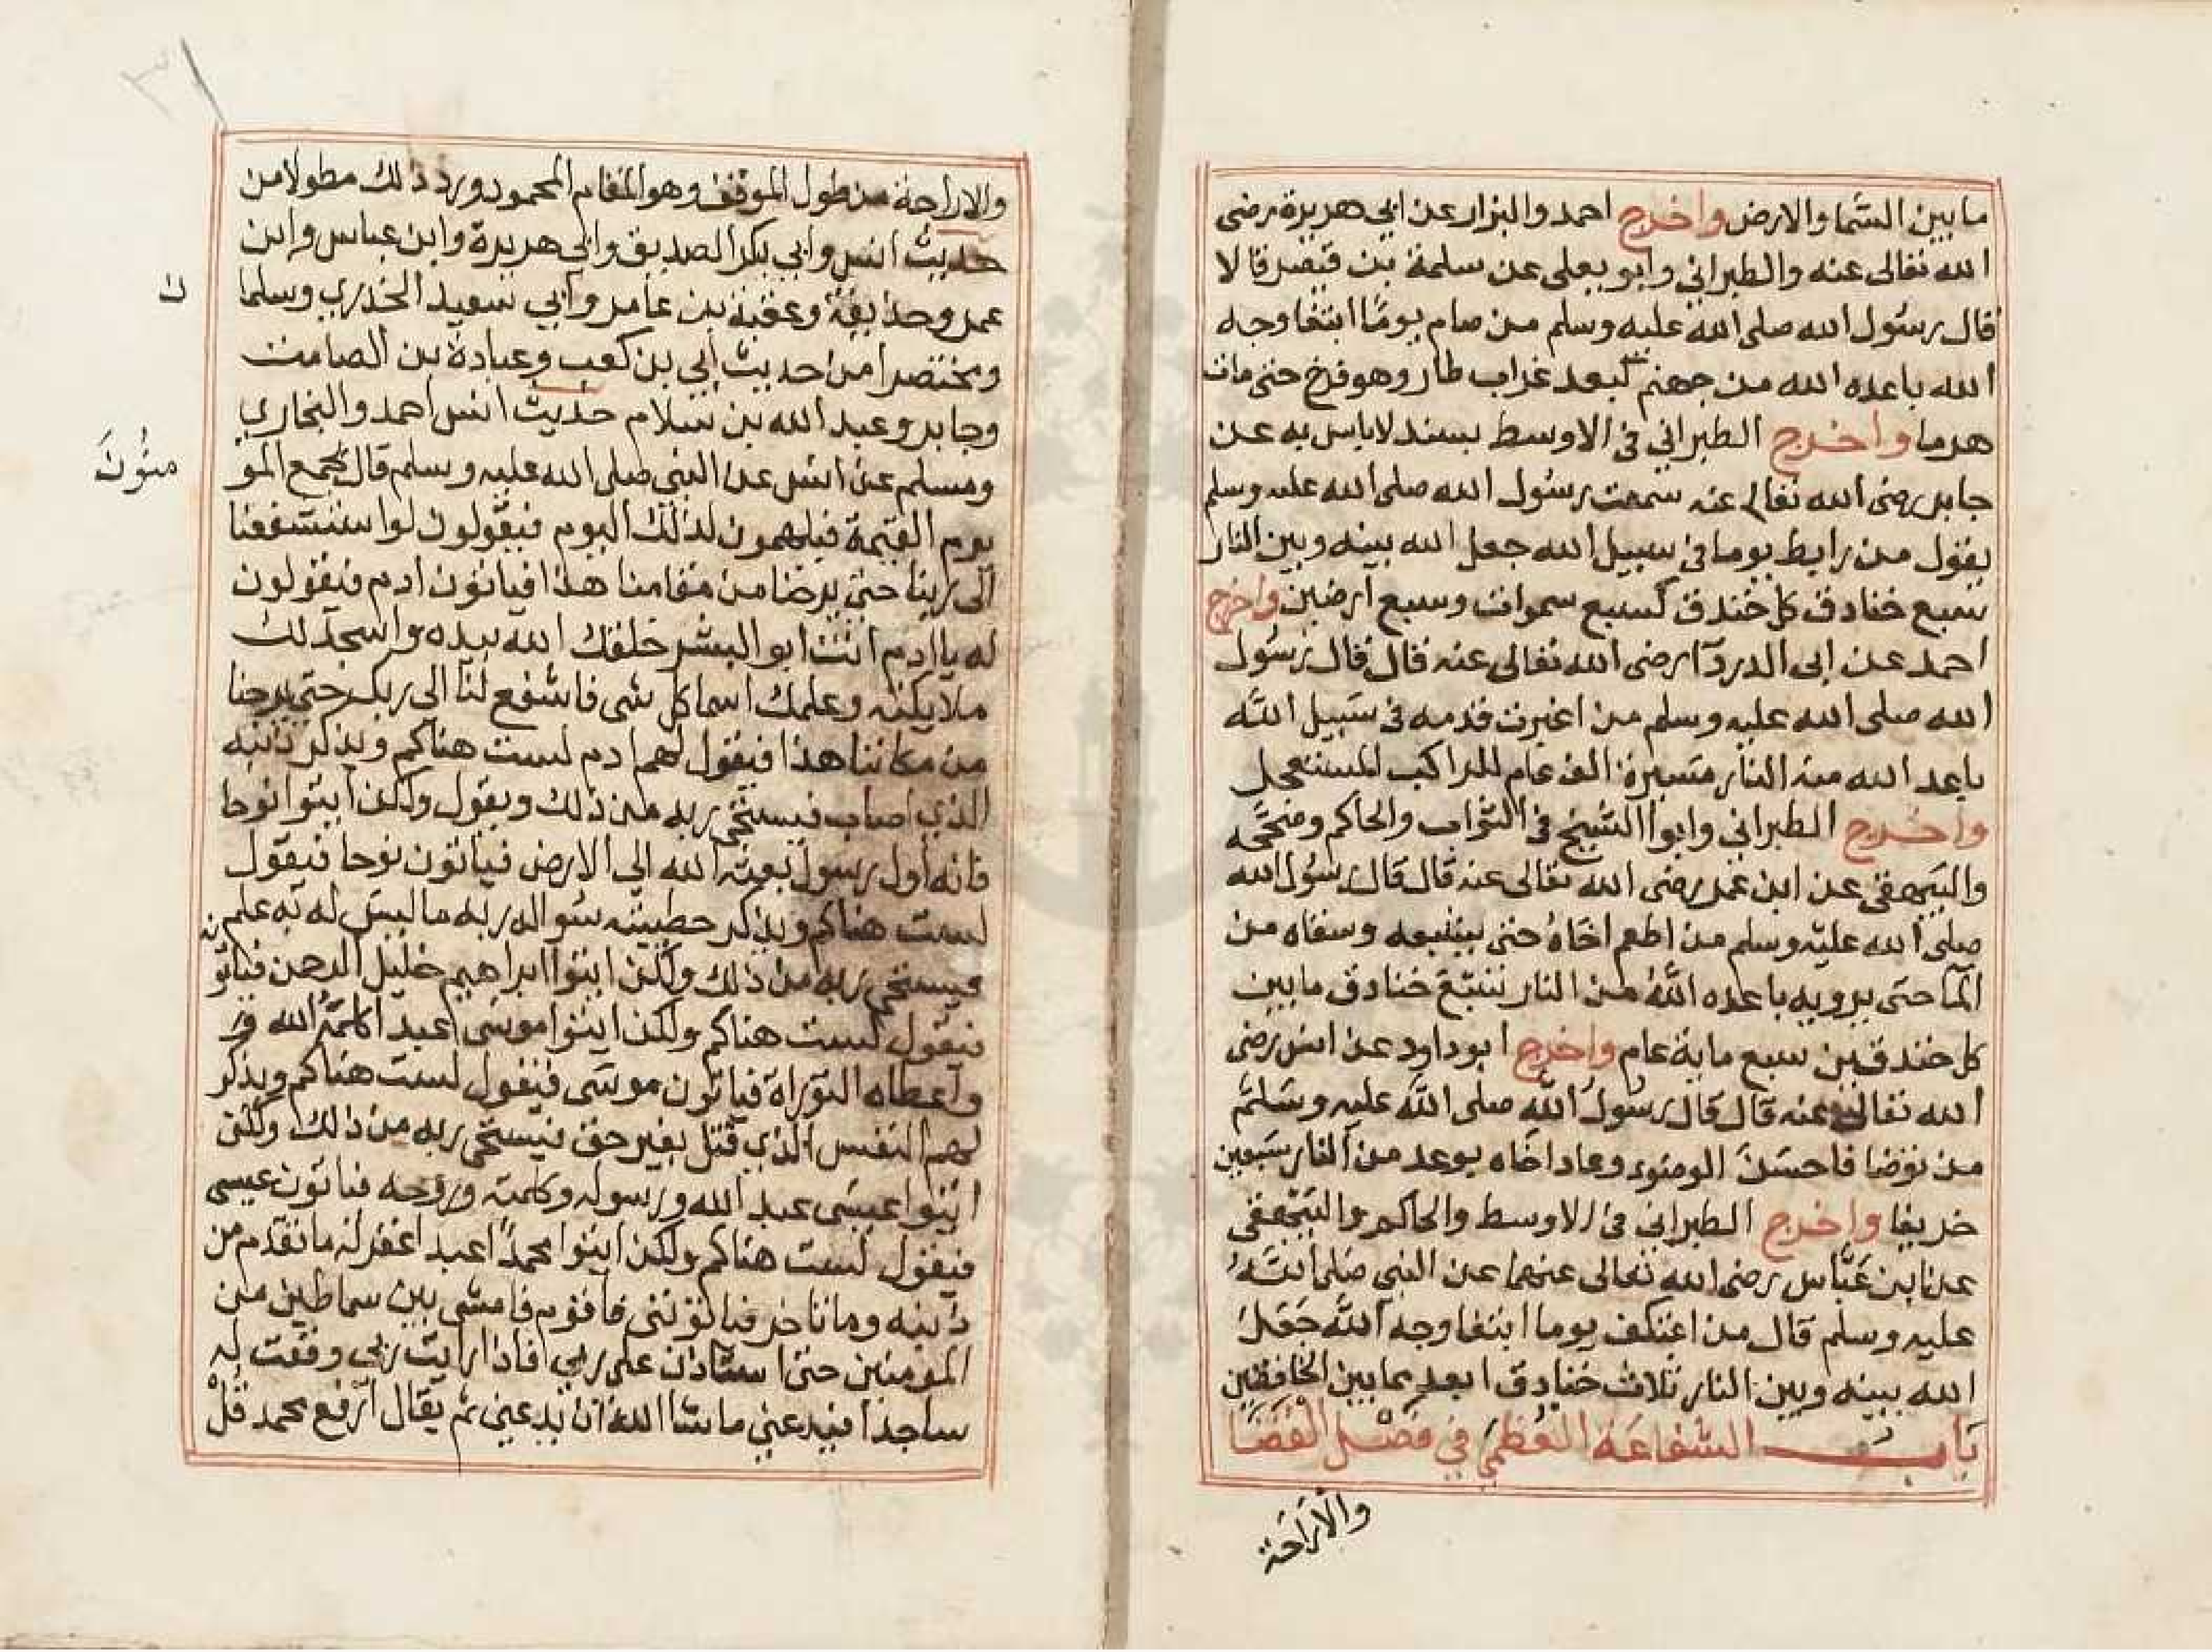 ما بين السما والارض واخرج احمد والبزار عن ابي هريرة رضى
الله تعالى عنه والطبراني وابو يعلى عن سلمة بن قيصر قالا
قال رسول الله صلى الله عليه وسلم من صام يوما ابتغا وجه
الله باعده الله من جهنم كبعد غراب طار وهو فرخ حتى مات
هرما واخرج الطبراني في الاوسط بسند لا باس به عن
جابر رضى الله تعالى عنه سمعت رسول الله صلى الله عليه وسلم
يقول من رابط يوما في سبيل الله جعل الله بينه وبين النار
سبع خنادق كل خندق كسبع سموات وسبع ارضين واخرج
احمد عن ابى الدردآ رضى الله تعالى عنه قال قال رسول
الله صلى الله عليه وسلم من اغبرت قدمه في سبيل الله
باعد الله منه النار مسيرة الف عام للراكب المستعجل
واخرج الطبراني وابوا الشيخ في الثواب والحاكم وصححه
والبيهقي عن ابن عمر رضى الله تعالى عنه قال قال رسول الله
صلى الله عليه وسلم من اطعم اخاه حتى يشبعه وسقاه من
المآ حتى يرويه باعده الله من النار سبع خنادق ما بين
كل خندقين سبع ماية عام واخرج ابو داود عن انس رضى
الله تعالى عنه قال قال رسول الله صلى الله عليه وسلم
من توضا فاحسن الوضوء وعاد اخاه بوعد من النار سبعين
خريفا واخرج الطبراني في الاوسط والحاكم والبيهقي
عن ابن عباس رضى الله تعالى عنهما عن النبي صلى الله
عليه وسلم قال من اعتكف يوما ابتغا وجه الله جعل
الله بينه وبين النار ثلاث خنادق ابعد مما بين الخافقين
باب الشفاعة العظمى في فصل القضا
والاراحة
والاراحة من طول الموقف وهو المقام المحمود ورد ذلك مطولا من
حديث انس وابي بكر الصديق وابي هريرة وابن عباس وابن
عمر وحذيفة وعقبة بن عامر وابي سعيد الخدري وسلما
ن
ومختصرا من حديث ابي بن كعب وعبادة بن الصامت
وجابر وعبد الله بن سلام حديث انس احمد والبخاري
ومسلم عن انس عن النبي صلى الله عليه وسلم قال يجمع المو
منون
يوم القيمة فيلهمون لذلك اليوم فيقولون لوا ستشفعنا
الى ربنا حتى يرحنا من مقامنا هذا فياتون ادم فيقولون
له يا ادم انت ابو البشر خلقك الله بيده واسجد لك
ملايكته وعلمك اسما كل شى فاشفع لنا الى ربك حتى يرحنا
من مكاننا هذا فيقول لهم ادم لست هناكم ويذكر ذنبه
الذي اصاب فيستحى ربه من ذلك ويقول ولكن ايتوا نوحا
فانه اول رسول بعثه الله الى الارض فياتون نوحا فيقول
لست هناكم ويذكر خطيته سواله ربه ما ليس له به علم
فيستحى ربه من ذلك ولكن ايتوا ابراهيم خليل الرحمن فياتو
نه
فيقول لست هناكم ولكن ايتوا موسى عبدا كلمه الله
واعطاه التوراة فياتون موسى فيقول لست هناكم ويذكر
لهم النفس الذي قتل بغير حق فيستحى ربه من ذلك ولكن
ايتوا عيسى عبد الله ورسوله وكلمته وروحه فياتون عيسى
فيقول لست هناكم ولكن ايتوا محمدا عبدا غفر له ما تقدم من
ذنبه وما تاخر فياتونني فاقوم فامشى بين سماطين من
المومنين حتى استاذن على ربي فاذا رايت ربي وقعت له
ساجدا فيدعني ما شا الله ان يدعني ثم يقال ارفع محمد قل